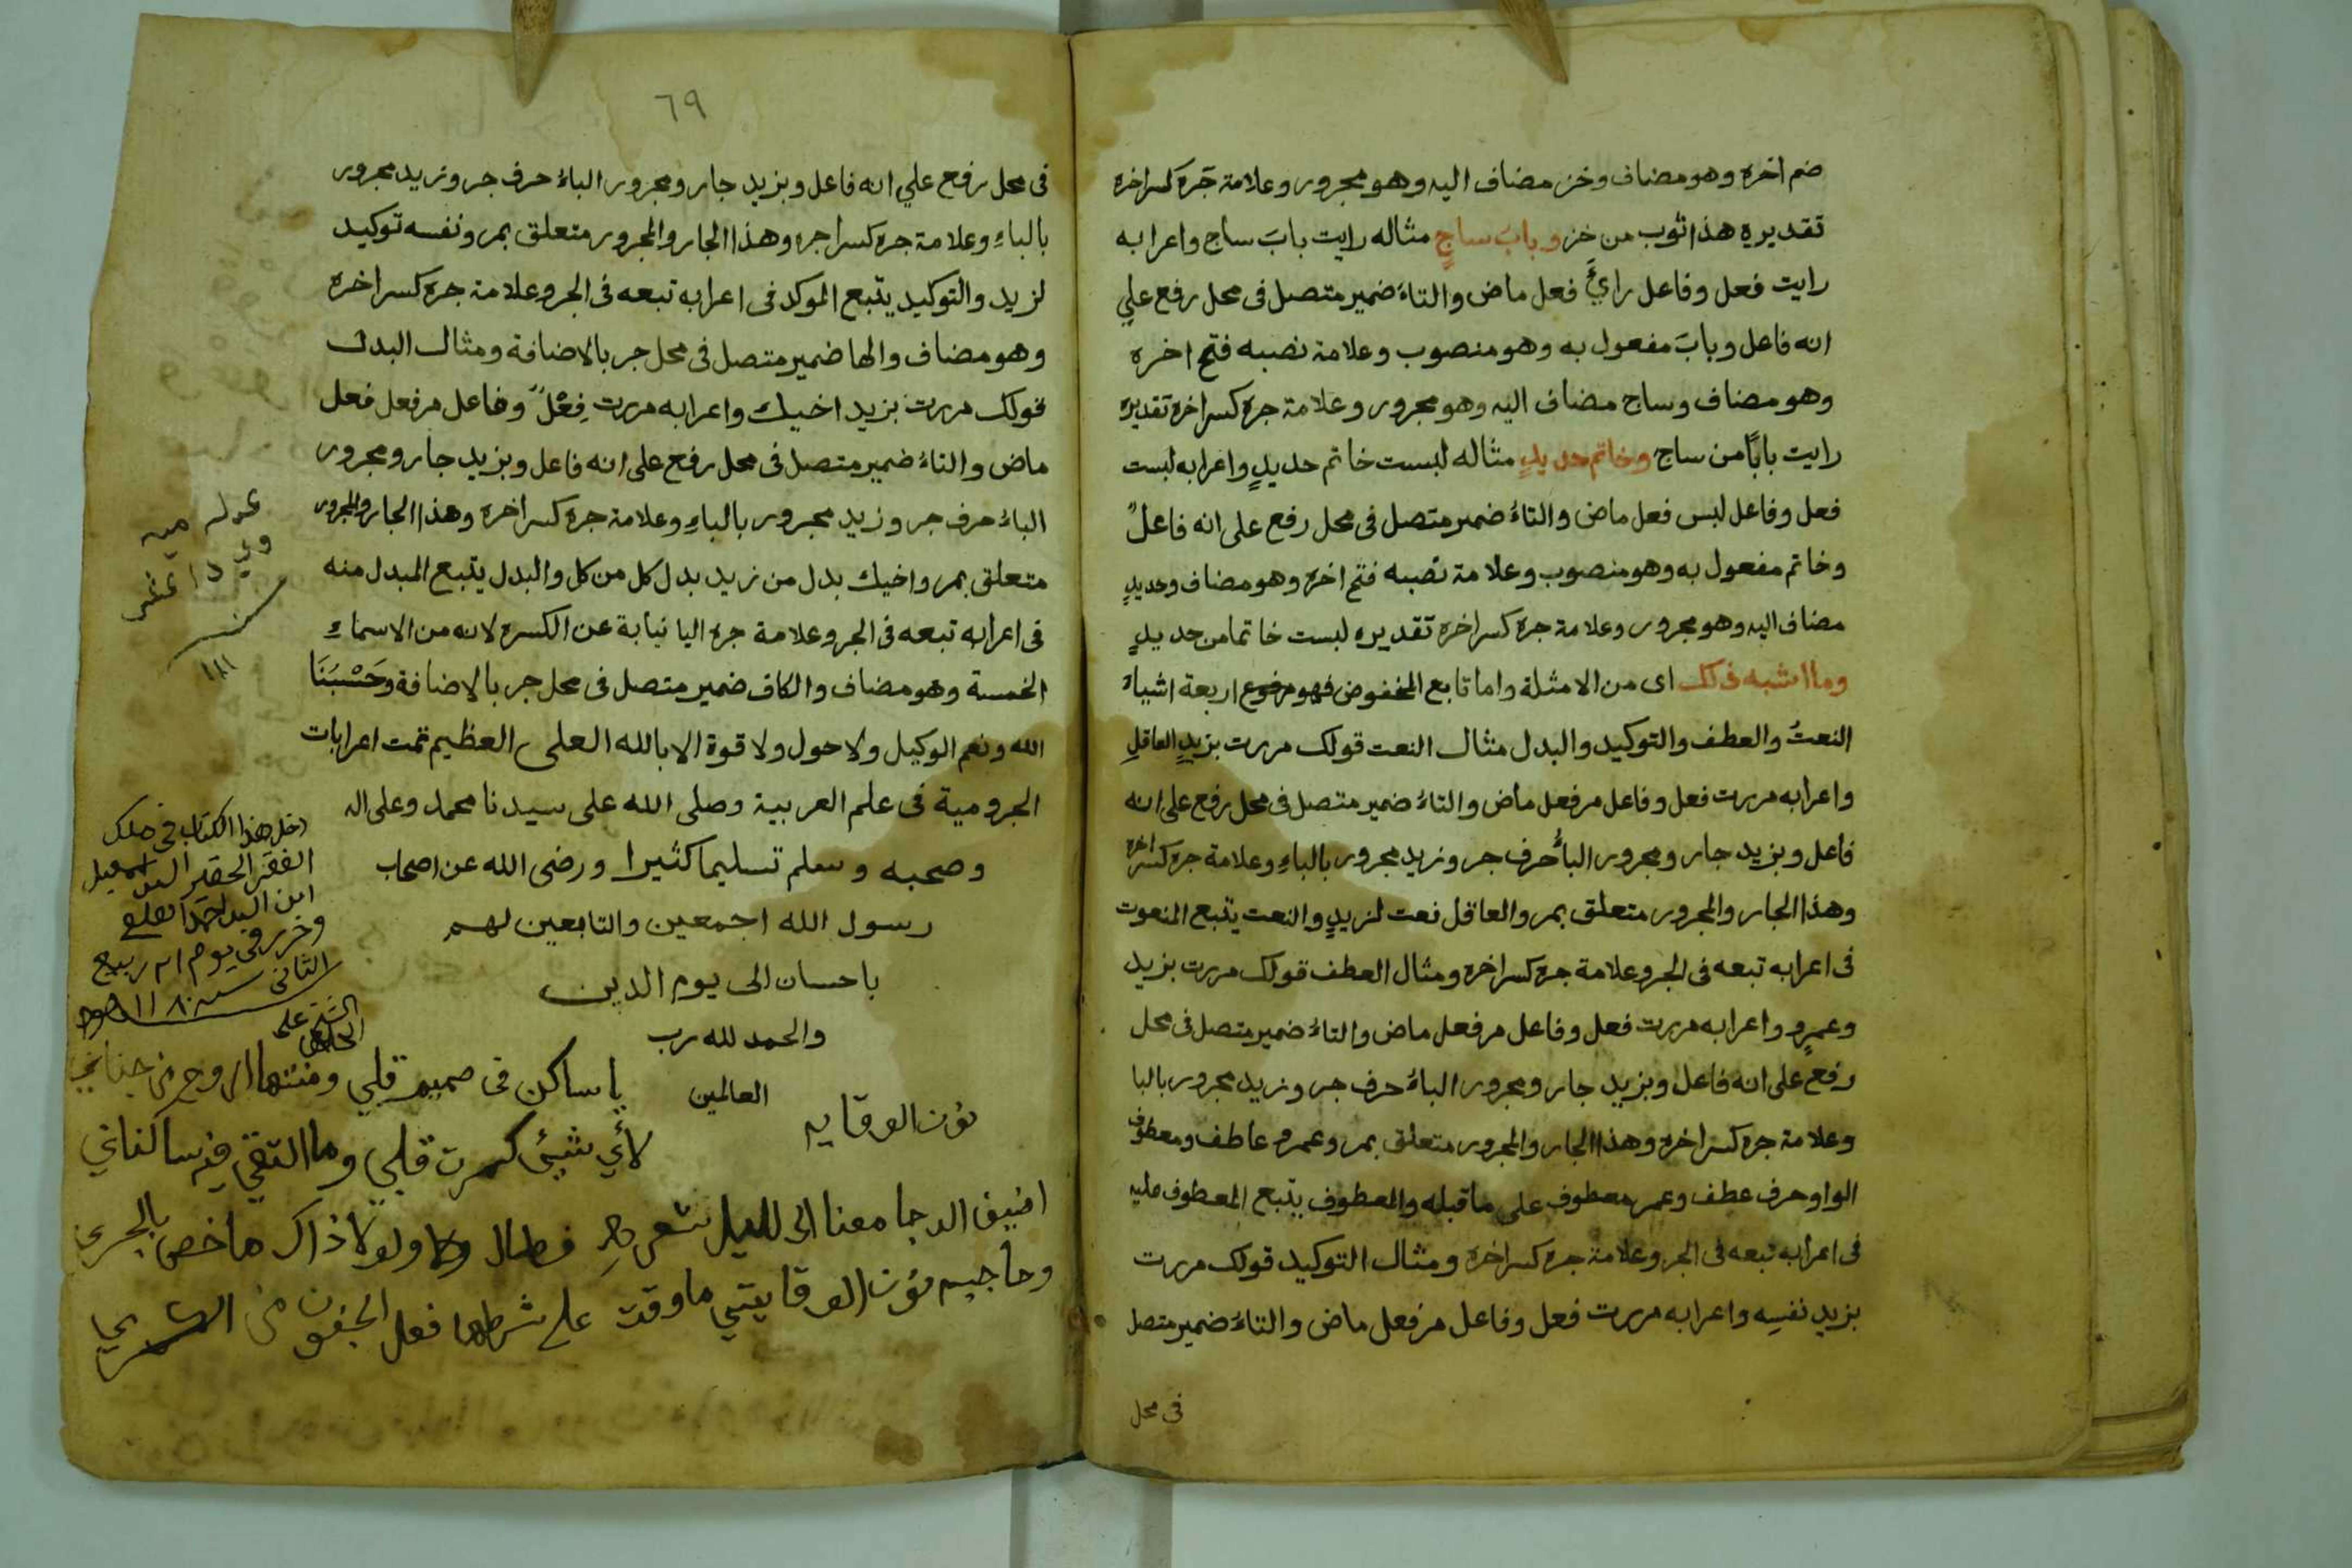 ضم اخره وهو مضاف وخز مضاف اليه وهو مجرور وعلامة جره كسر اخره
تقديره هذا ثوب من خز وبابَ ساجٍ مثاله رايت بابَ ساج واعرابه
رايت فعل وفاعل رايَ فعل ماض والتاءُ ضمير متصل فى محل رفع علي
انه فاعل وبابَ مفعول به وهو منصوب وعلامة نصبه فتح اخره
وهو مضاف وساج مضاف اليه وهو مجرور وعلامة جره كسر اخره تقديره
رايت بابًا من ساج وخاتم حديدٍ مثاله لبست خاتم حديدٍ واعرابه لبست
فعل وفاعل لبس فعل ماض والتاءُ ضمير متصل فى محل رفع على انه فاعلٌ
وخاتم مفعول به وهو منصوب وعلامة نصبه فتح اخره وهو مضاف وحديدٍ
مضاف اليه وهو مجرور وعلامة جره كسر اخره تقديره لبست خاتما من حديدٍ
وما اشبه ذلك اى من الامثلة واما تابع المخفوض فهو مرفوع اربعة اشياءَ
النعتُ والعطف والتوكيد والبدل مثال النعت قولك مررت بزيدٍ العاقلِ
واعرابه مررت فعل وفاعل مر فعل ماض والتاءُ ضمير متصل فى محل رفع على انه
فاعل وبزيد جار ومجرور الباءُ حرف جر وزيد مجرور بالباءِ وعلامة جره كسر اخره
وهذا الجار والمجرور متعلق بمر والعاقل نعت لزيدٍ والنعت يتبع المنعوت
فى اعرابه تبعه فى الجر وعلامة جره كسر اخره ومثال العطف قولك مررت بزيد
وعمرٍو واعرابه مررت فعل وفاعل مر فعل ماض والتاءُ ضمير متصل فى محل
رفع على انه فاعل وبزيد جار ومجرور الباءُ حرف جر وزيد مجرور بالبا
وعلامة جره كسر اخره وهذا الجار والمجرور متعلق بمر وعمرو عاطف ومعطوف
الواو حرف عطف وعمر معطوف على ما قبله والمعطوف يتبع المعطوف عليه
فى اعرابه تبعه فى الجر وعلامة جره كسر اخره ومثال التوكيد قولك مررت
بزيد نفسِه واعرابه مررت فعل وفاعل مر فعل ماض والتاءُ ضمير متصل
فى محل
٦٩
فى محل رفع علي انه فاعل وبزيد جار ومجرور الباءُ حرف جر وزيد مجرور
بالباءِ وعلامة جره كسر اجره وهذا الجار والمجرور متعلق بمر ونفسه توكيد
لزيد والتوكيد يتبع الموكد فى اعرابه تبعه فى الجر وعلامة جره كسر اخره
وهو مضاف والها ضمير متصل فى محل جر بالاضافة ومثال البدل
قولك مررت بزيد اخيك واعرابه مررت فِعْلٌ وفاعل مر فعل فعل
ماض والتاءُ ضمير متصل فى محل رفع على انه فاعل وبزيد جار ومجرور
الباءُ حرف جر وزيد مجرور بالباءِ وعلامة جره كسر اخره وهذا الجار والمجرور
متعلق بمر واخيك بدل من زيد بدل كل من كل والبدل يتبع المبدل منه
فى اعرابه تبعه فى الجر وعلامة جره اليا نيابة عن الكسرة لانه من الاسماءِ
الخمسة وهو مضاف والكاف ضمير متصل فى محل جر بالاضافة وَحَسْبُنَا
الله ونعم الوكيل ولا حول ولا قوة الا بالله العلى العظيم تمت اعرابات
الجرومية فى علم العربية وصلى الله على سيدنا محمد وعلى اله
وصحبه وسلم تسليما كثيرا ورضى الله عن اصحاب
رسول الله اجمعين والتابعين لهم
باحسان الى يوم الدين
والحمد لله رب
العالمين
دخل هذا الكتاب فى ملك
الفقير الحقير السيد اسمعيل
ابن السيد احمد
وحرر فى يوم ربيع
الثانى سنه ١١٨٠
الشيخ على
نون الوقايه
يا ساكن فى صميم قلبي ومنتها الروح من جناني
لأي شيئ كسرت قلبي وما التقى فيه ساكناني
اضيف الدجا معنا الى لليل شعره فطال ولولا ذاك ما خص بالجر
وحاجبه نون الوقايتي ما وقت على شرطها فعل الجفون من